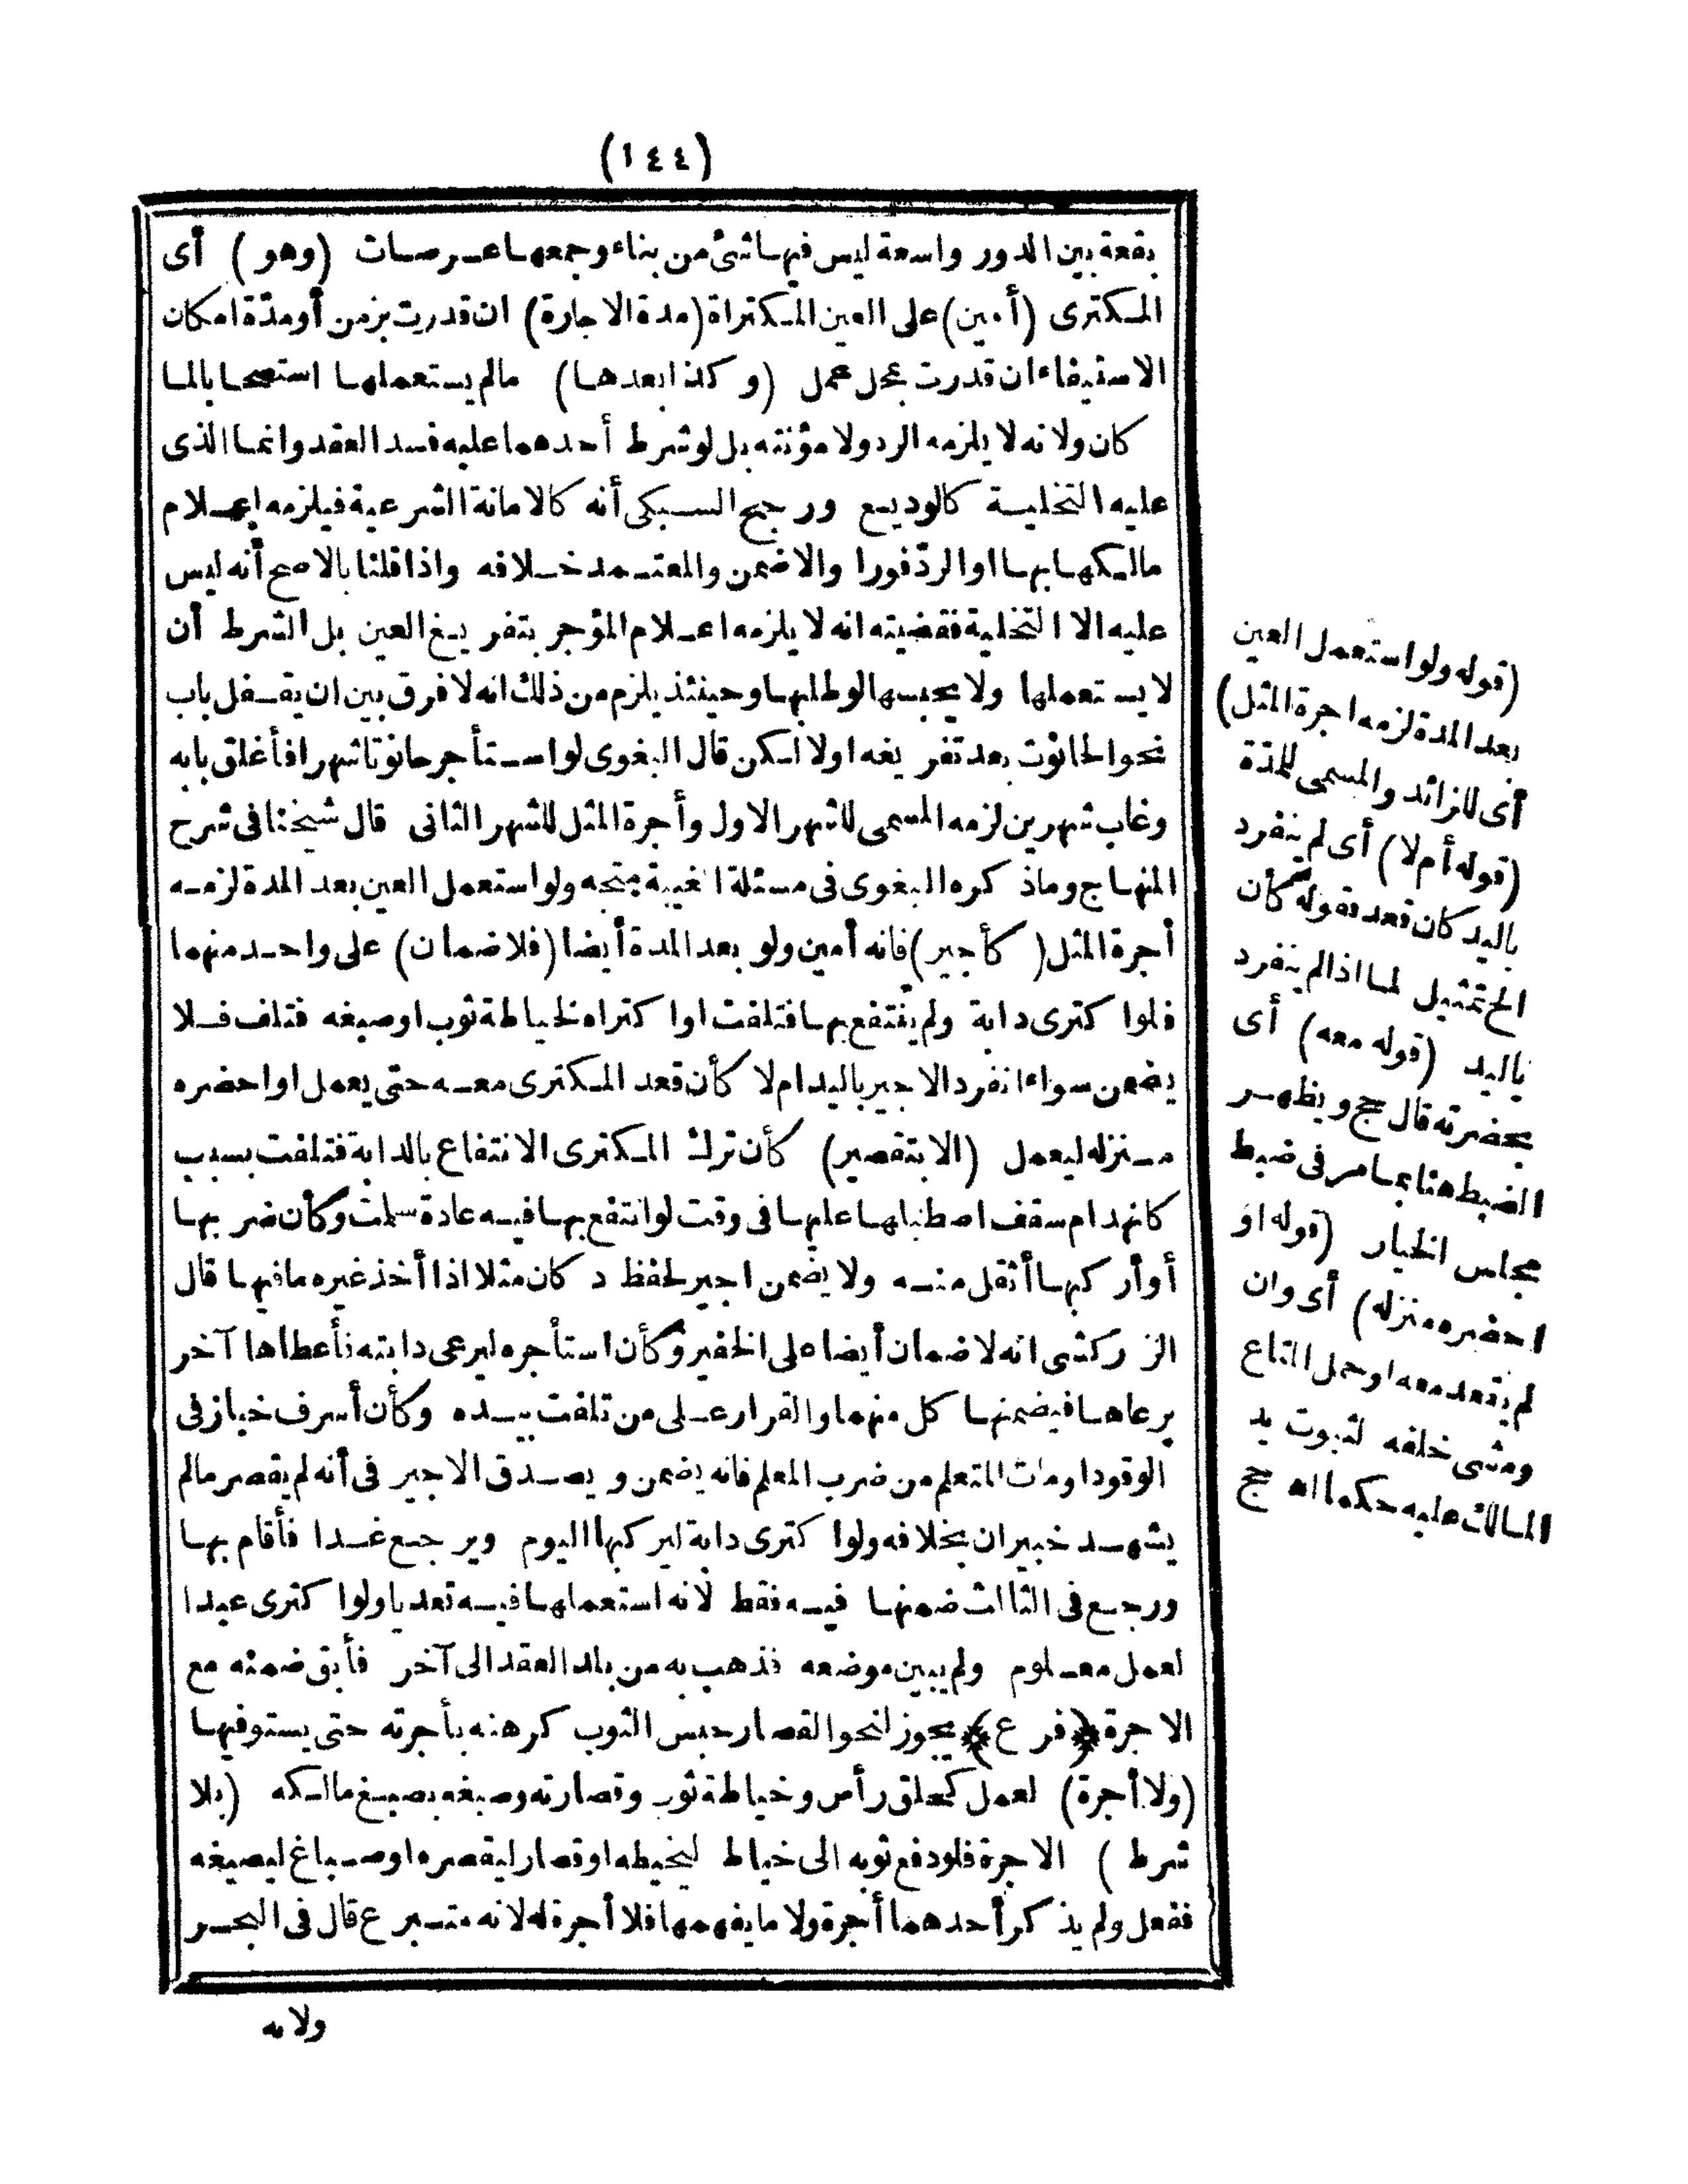 (١٤٤)
بقعة بين الدور واسعة ليس فيها شئ من بناء وجمعها عرصات (وهو) أى
المكترى (أمين) على العين المكتراة (مدة الاجارة) ان قدرت بزمن أو مدّة امكان
الاستيفاء ان قدرت بمحل عمل (وكذا بعدها) مالم يستعملها استصحابا لما
كان ولانه لا يلزمه الرد ولا مؤنته بل لو شرط أحدهما عليه فسد العقد وانما الذى
عليه التخلية كالوديع ورجح السبكى أنه كالامانة الشرعية فيلزمه اعلام
مالكها بها او الردّ فورا والا ضمن والمعتمد خلافه واذا قلنا بالاصح أنه ليس
عليه الا التخلية فقضيته انه لا يلزمه اعلام المؤجر بتفريغ العين بل الشرط أن
لا يستعملها ولا يحبسها لو طلبها وحينئذ يلزم من ذلك انه لا فرق بين ان يقفل باب
نحو الحانوت بعد تفريغه اولا لكن قال البغوى لو استأجر حانوتا شهرا فأغلق بابه
وغاب شهرين لزمه المسمى للشهر الاول وأجرة المثل للشهر الثانى قال شيخنا فى شرح
المنهاج وماذكره البغوى فى مسئلة الغيبة متجه ولو استعمل العين بعد المدة لزمه
أجرة المثل (كأجير) فانه أمين ولو بعد المدة أيضا (فلا ضمان) على واحد منهما
فلوا كترى دابة ولم ينتفع بها فتلفت اوا كتراه لخياطة ثوب او صبغه فتلف فلا
يضمن سواء انفرد الاجير باليد ام لا كأن قعد المكترى معه حتى يعمل او احضره
منزله ليعمل (الا بتقصير) كأن ترك المكترى الانتفاع بالدابة فتلفت بسبب
كانهدام سقف اصطبلها عليها فى وقت لو انتفع بها فيه عادة سلمت وكأن ضربها
أو أركبها أثقل منه ولا يضمن اجير لحفظ دكان مثلا اذا أخذ غيره ما فيها قال
الزركشى انه لا ضمان أيضا على الخفير وكأن استأجره ليرعى دابته فأعطاها آخر
يرعاها فيضمنها كل منهما والقرار على من تلفت بيده وكأن أسرف خباز فى
الوقود او مات المتعلم من ضرب المعلم فانه يضمن ويصدق الاجير فى أنه لم يقصر مالم
يشهد خبيران بخلافه ولوا كترى دابة ليركبها اليوم ويرجع غدا فأقام بها
ورجع فى الثالث ضمنها فيه فقط لأنه استعملها فيه تعديا ولوا كترى عبدا
لعمل معلوم ولم يبين موضعه فذهب به من بلد العقد الى آخر فأبق ضمنه مع
الاجرة ﴿فرع﴾ يجوز لنحو القصار حبس الثوب كرهنه بأجرته حتى يستوفيها
(ولا أجرة) لعمل كحلق رأس وخياطة ثوب وقصارته وصبغه بصبغ مالكه (بلا
شرط) الاجرة فلو دفع ثوبه الى خياط ليخيطه او قصار ليقصره او صباغ ليصبغه
ففعل ولم يذكر أحدهما أجرة ولا ما يفهمها فلا أجرة له لانه متبرع قال فى البحر
ولانه
(قوله ولو استعمل العين
بعد المدة لزمه اجرة المثل)
أى للزائد والمسمى للمدّة
(قوله أم لا) أى لم ينفرد
باليد كان قعد فقوله كأن
الخ تمثيل لما اذا لم ينفرد
باليد (قوله معه) أى
بحضرته قال حج ويظهر
الضبط هنا بما مر فى ضبط
مجلس الخيار (قوله او
احضره منزله) أى وان
لم يقعد معه او حمل المتاع
ومشى خلفه لثبوت يد
المالك عليه حكما اه حج